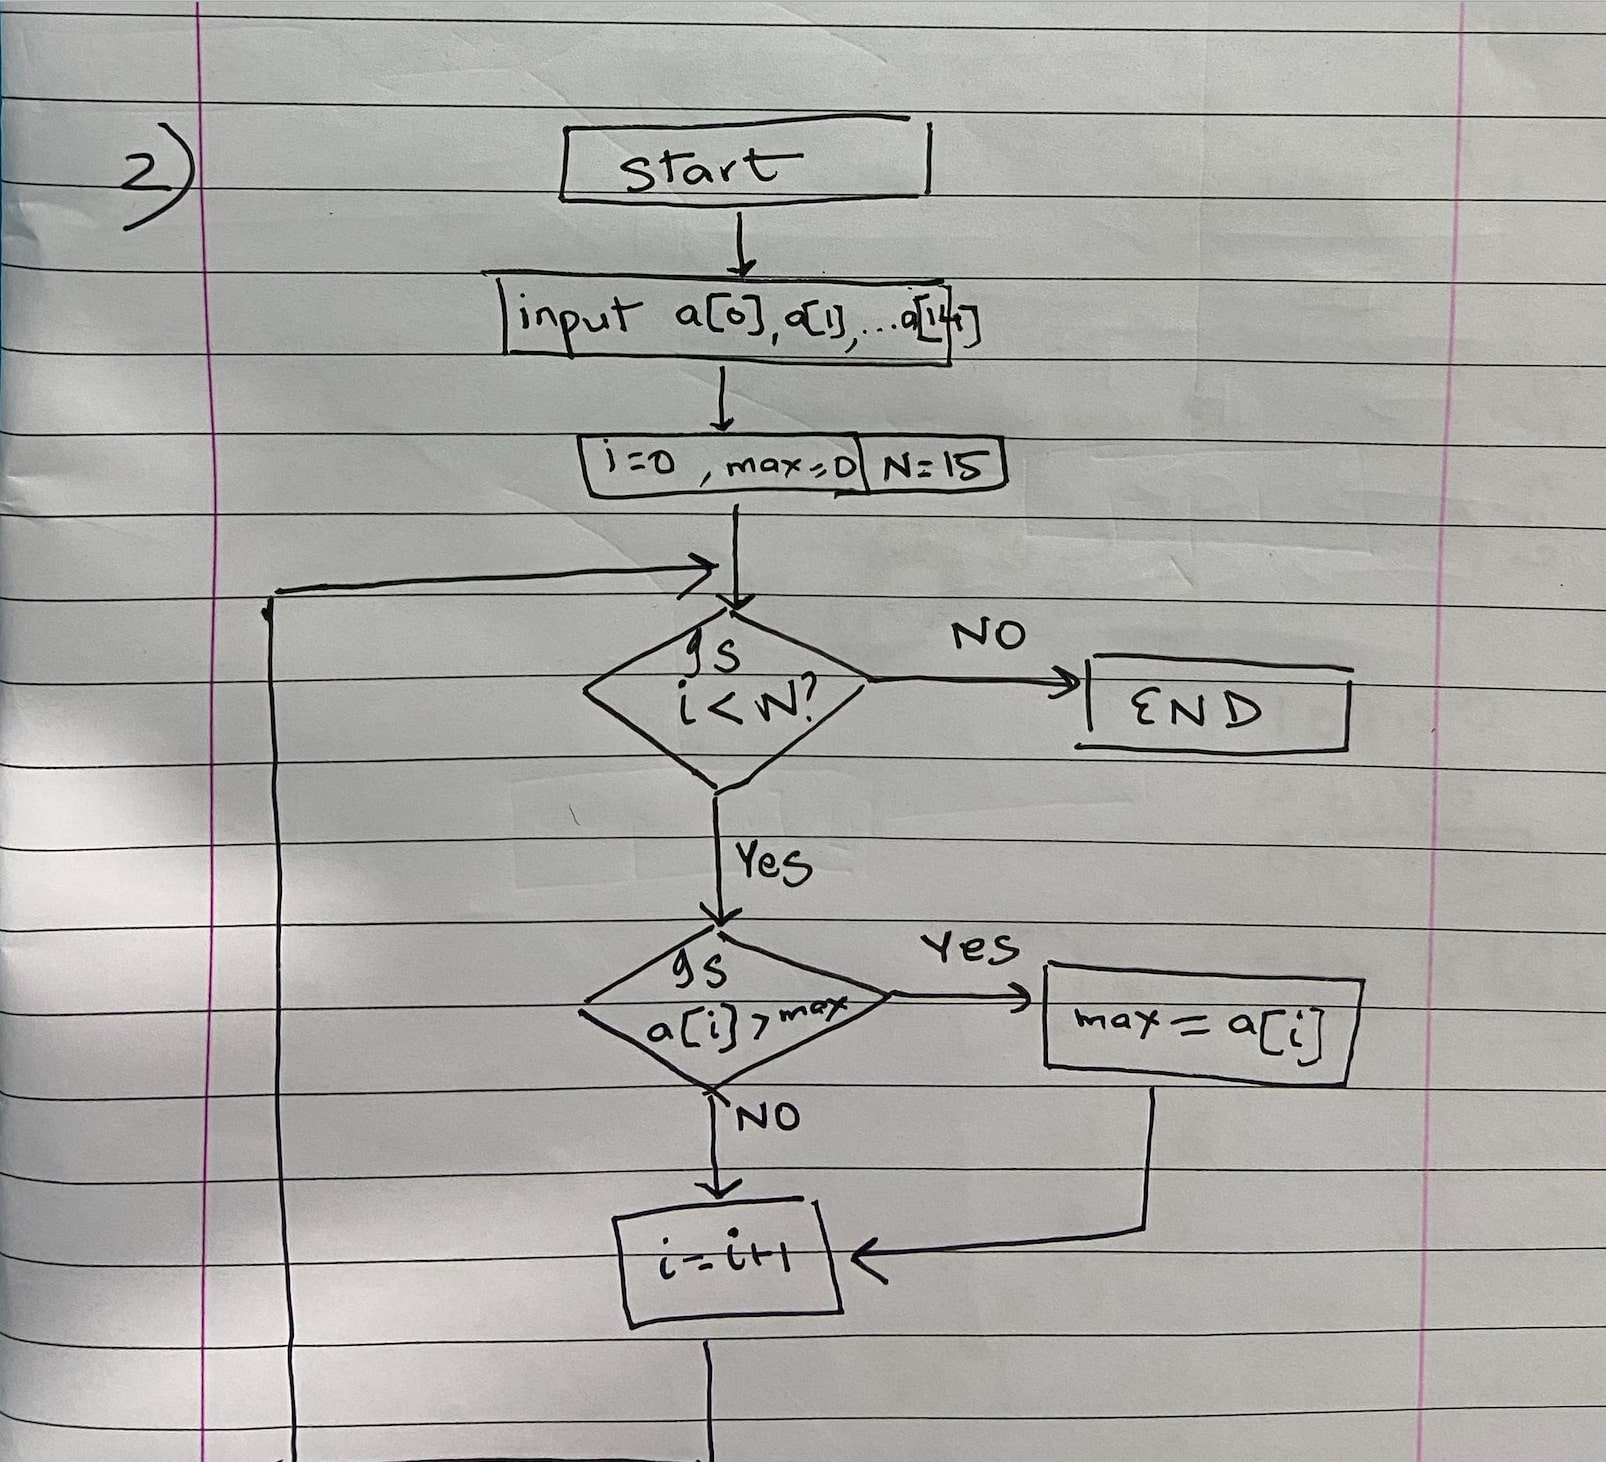 2)
start
input a[0], a[1], ...a[14]
i=0 , max=0 N=15
Is
i < N?
NO
END
Yes
Is
a[i] > max
Yes
max = a[i]
NO
i=i+1